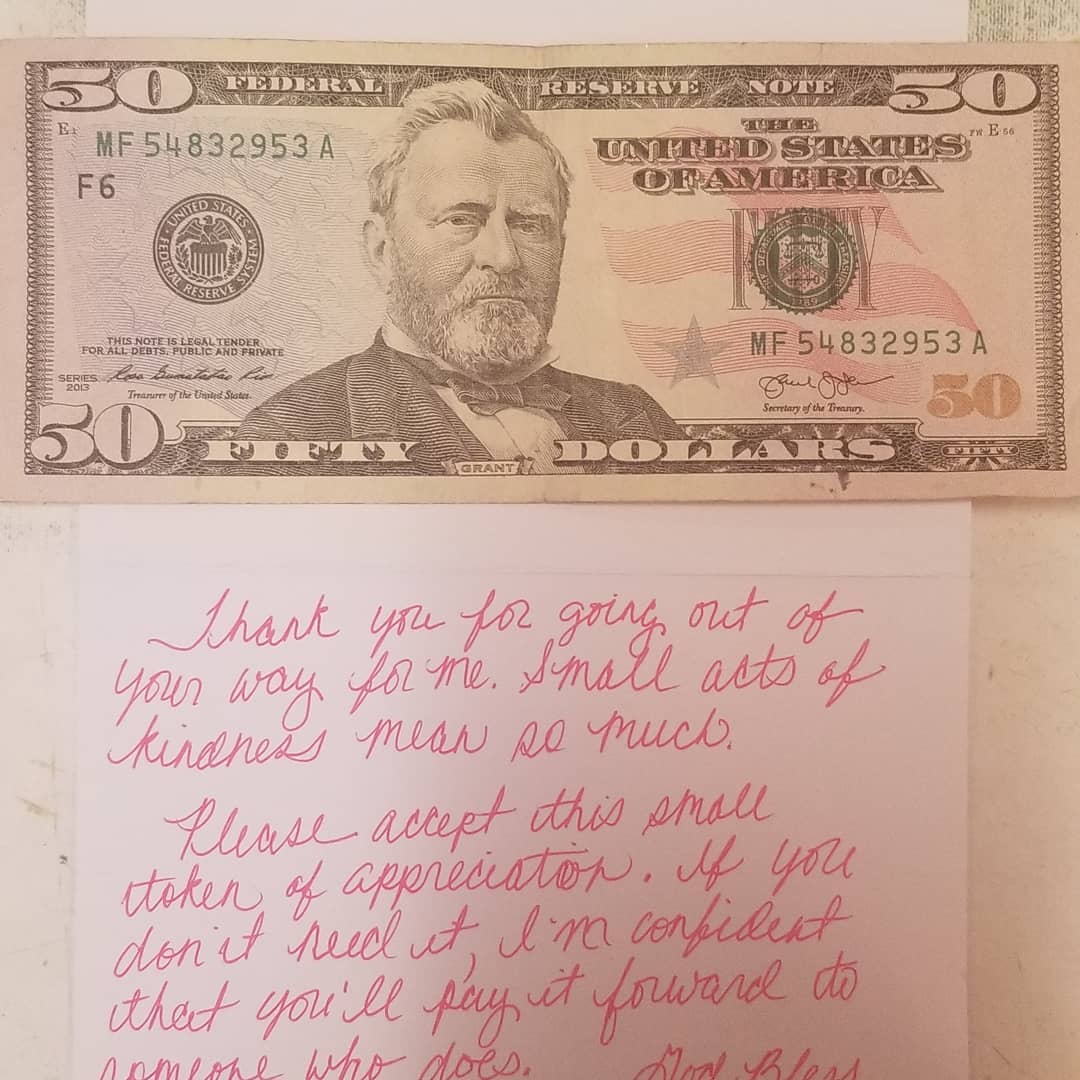 50 FEDERAL RESERVE NOTE 50
E1 THE FW E 56
MF 54832953 A UNITED STATES
F6 OF AMERICA
UNITED STATES
FEDERAL RESERVE SYSTEM
MF 54832953 A
THIS NOTE IS LEGAL TENDER
FOR ALL DEBTS, PUBLIC AND PRIVATE
SERIES
2013
Treasurer of the United States.
Secretary of the Treasury.
50
50 FIFTY GRANT DOLLARS FIFTY
Thank you for going out of
your way for me. Small acts of
kindness mean so much.
Please accept this small
token of appreciation. If you
don't need it, I'm confident
that you'll pay it forward to
someone who does. God Bless